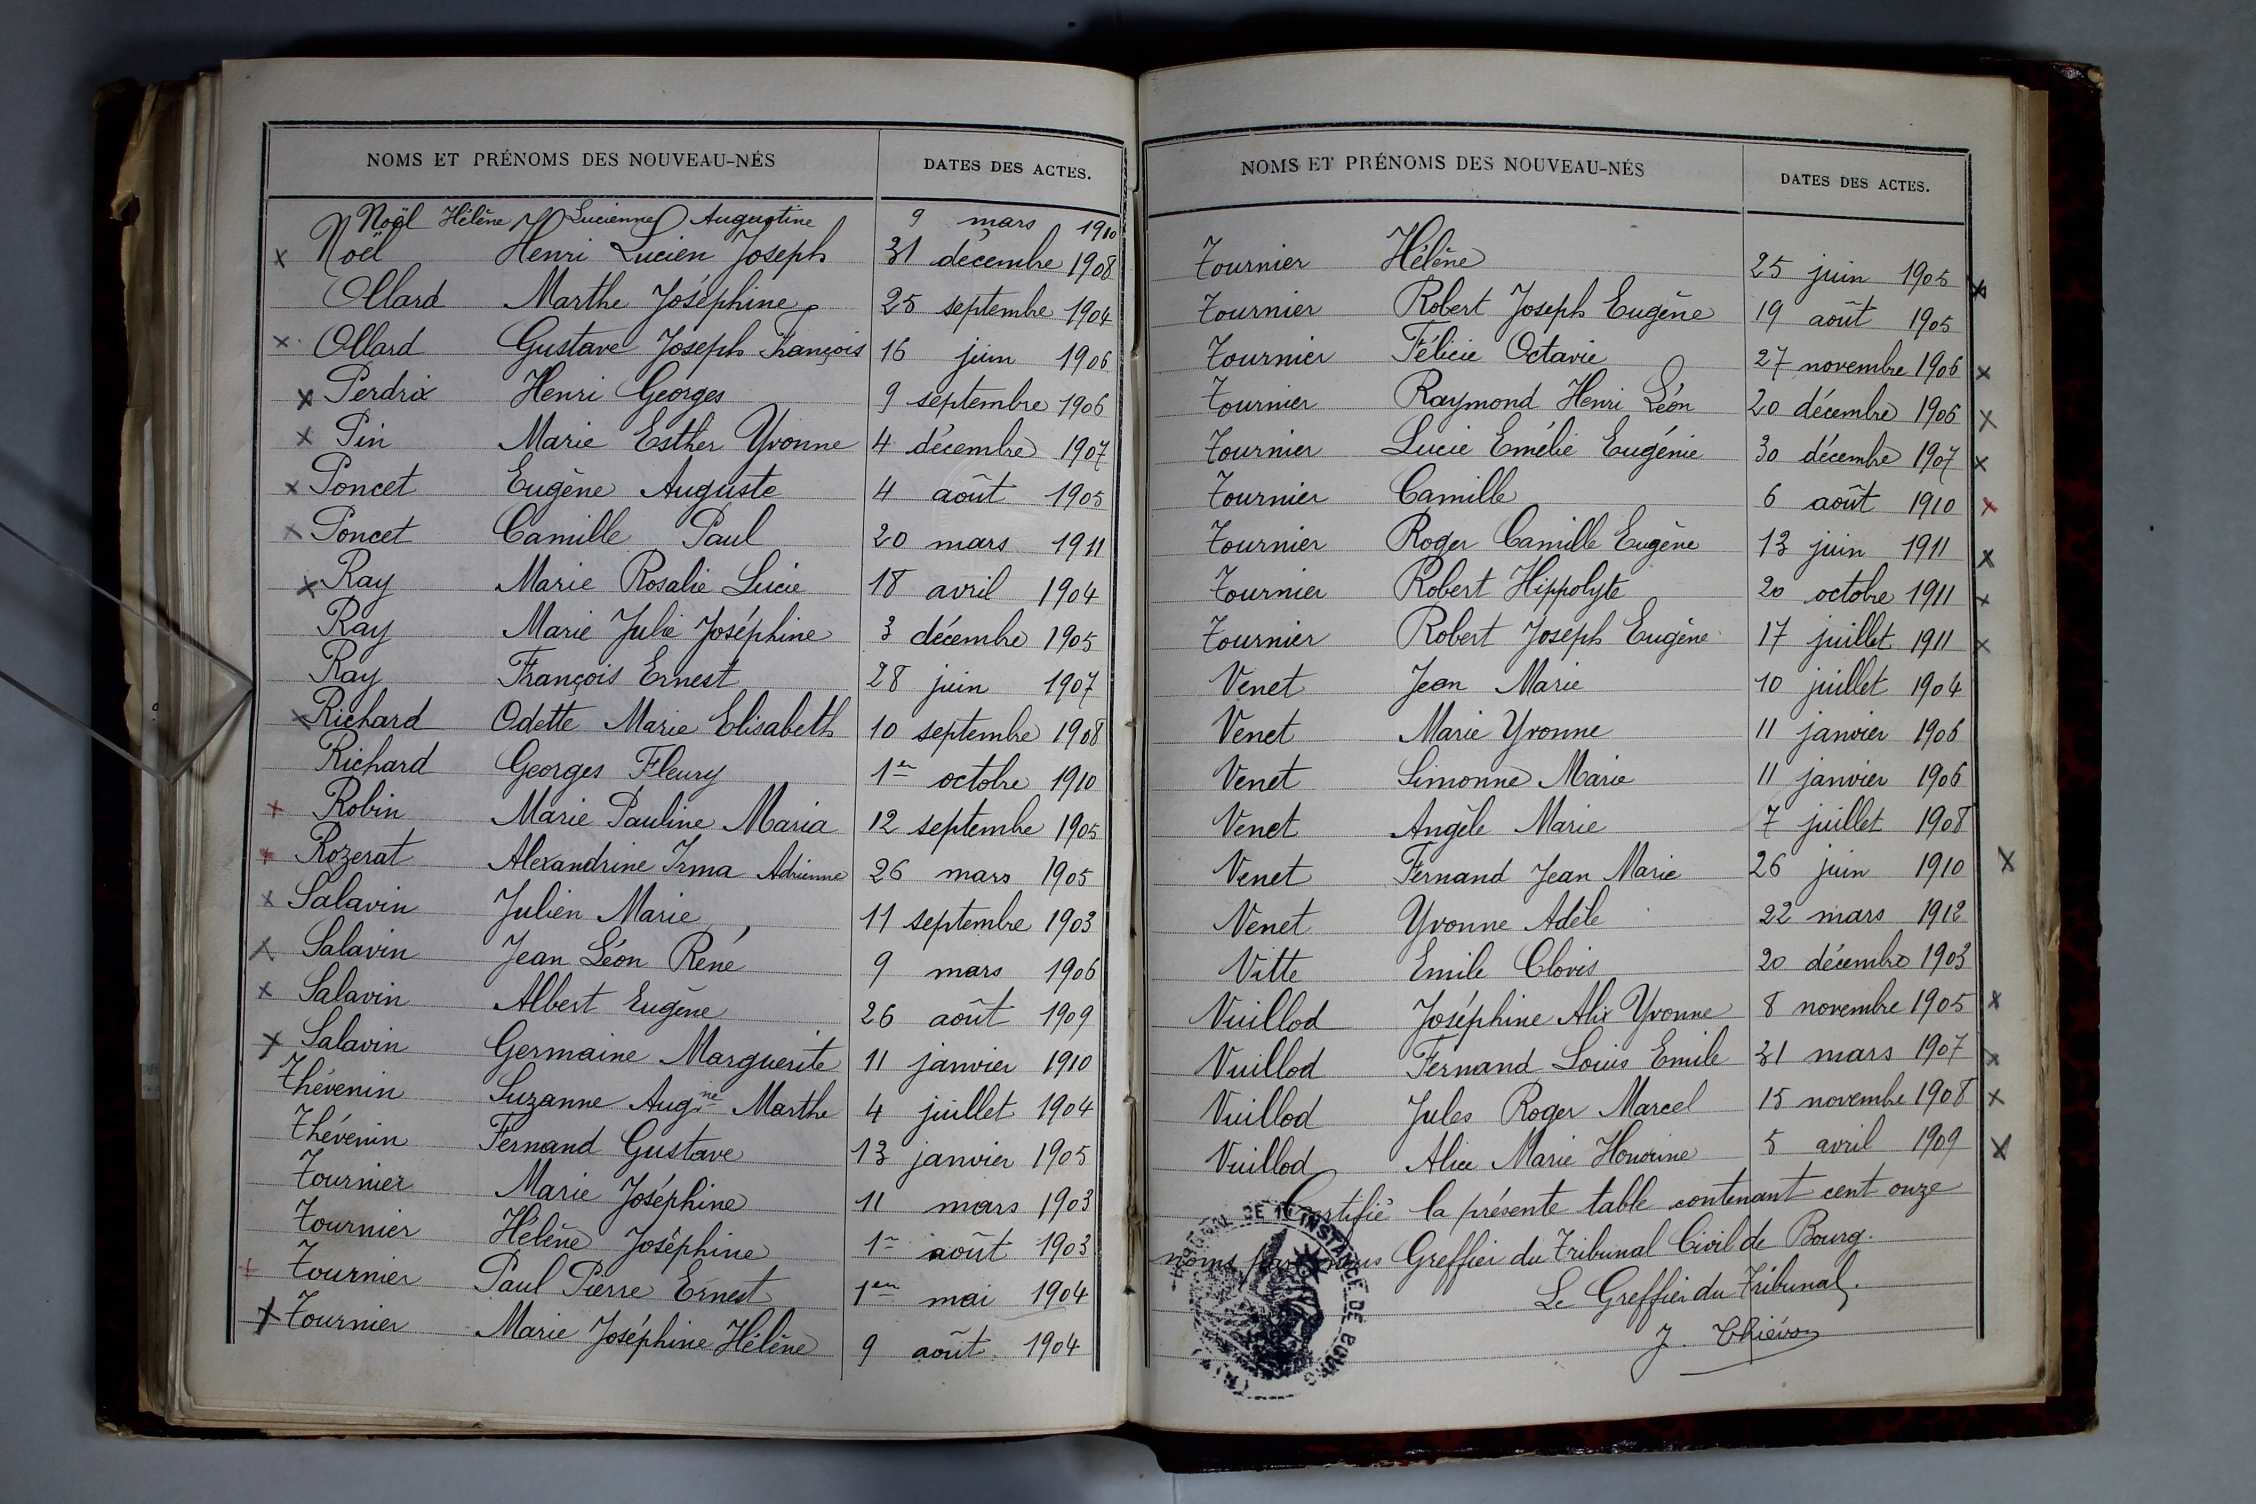 NOMS ET PRÉNOMS DES NOUVEAU-NÉS DATES DES ACTES.
Noël Hélène Lucienne Augustine 9 mars 1910
Noël Henri Lucien Joseph 31 décembre 1908
Ollard Marthe Joséphine 25 septembre 1904
Ollard Gustave Joseph François 16 juin 1906
Perdrix Henri Georges 9 septembre 1906
Pin Marie Esther Yvonne 4 décembre 1907
Poncet Eugène Auguste 4 août 1905
Poncet Camille Paul 20 mars 1911
Ray Marie Rosalie Lucie 18 avril 1904
Ray Marie Julie Joséphine 3 décembre 1905
Ray François Ernest 28 juin 1907
Richard Odette Marie Elisabeth 10 septembre 1908
Richard Georges Fleury 1er octobre 1910
Robin Marie Pauline Maria 12 septembre 1905
Rozerat Alexandrine Irma Adrienne 26 mars 1905
Salavin Julien Marie 11 septembre 1903
Salavin Jean Léon René 9 mars 1906
Salavin Albert Eugène 26 août 1909
Salavin Germaine Marguerite 11 janvier 1910
Thévenin Suzanne Augne Marthe 4 juillet 1904
Thévenin Fernand Gustave 13 janvier 1905
Tournier Marie Joséphine 11 mars 1903
Tournier Hélène Joséphine 1er août 1903
Tournier Paul Pierre Ernest 1er mai 1904
Tournier Marie Joséphine Hélène 9 août 1904
NOMS ET PRÉNOMS DES NOUVEAU-NÉS DATES DES ACTES.
Tournier Hélène 25 juin 1905
Tournier Robert Joseph Eugène 19 août 1905
Tournier Félicie Octavie 27 novembre 1906
Tournier Raymond Henri Léon 20 décembre 1906
Tournier Lucie Emélie Eugénie 30 décembre 1907
Tournier Camille 6 août 1910
Tournier Roger Camille Eugène 13 juin 1911
Tournier Robert Hippolyte 20 octobre 1911
Tournier Robert Joseph Eugène 17 juillet 1911
Venet Jean Marie 10 juillet 1904
Venet Marie Yvonne 11 janvier 1906
Venet Simonne Marie 11 janvier 1906
Venet Angèle Marie 7 juillet 1908
Venet Fernand Jean Marie 26 juin 1910
Venet Yvonne Adèle 22 mars 1912
Vitte Emile Clovis 20 décembre 1903
Vuillod Joséphine Alix Yvonne 8 novembre 1905
Vuillod Fernand Louis Emile 31 mars 1907
Vuillod Jules Roger Marcel 15 novembre 1908
Vuillod Alice Marie Honorine 5 avril 1909
Certifié la présente table contenant cent onze
noms par nous Greffier du Tribunal Civil de Bourg.
Le Greffier du Tribunal.
TRIBUNAL DE 1re INSTANCE DE BOURG